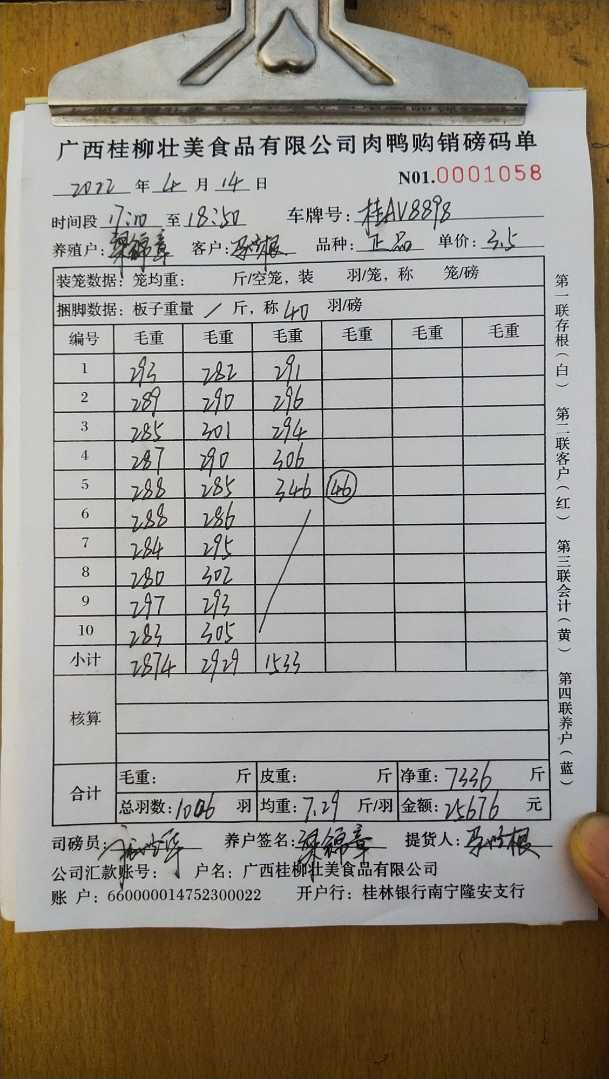 广西桂柳壮美食品有限公司肉鸭购销磅码单
2022 年 4 月 14 日 N01.0001058
时间段 17:00 至 18:50 车牌号: 桂AV8898
养殖户: 梁锦章 客户: 根 品种: 正品 单价: 3.5
装笼数据: 笼均重: 斤/空笼, 装 羽/笼, 称 笼/磅
捆脚数据: 板子重量 / 斤, 称 40 羽/磅
编号 毛重 毛重 毛重 毛重 毛重 毛重
1 293 282 291
2 289 290 296
3 285 301 294
4 287 290 306
5 288 285 346 46
6 288 286
7 284 295
8 280 302
9 297 293
10 283 305
小计 2874 2929 1533
核算
合计 毛重: 斤 皮重: 斤 净重: 7336 斤
总羽数: 1006 羽 均重: 7.29 斤/羽 金额: 25676 元
司磅员: 养户签名: 梁锦章 提货人: 根
公司汇款账号: 户名: 广西桂柳壮美食品有限公司
账 户: 660000014752300022 开户行: 桂林银行南宁隆安支行
第一联存根(白) 第二联客户(红) 第三联会计(黄) 第四联养户(蓝)